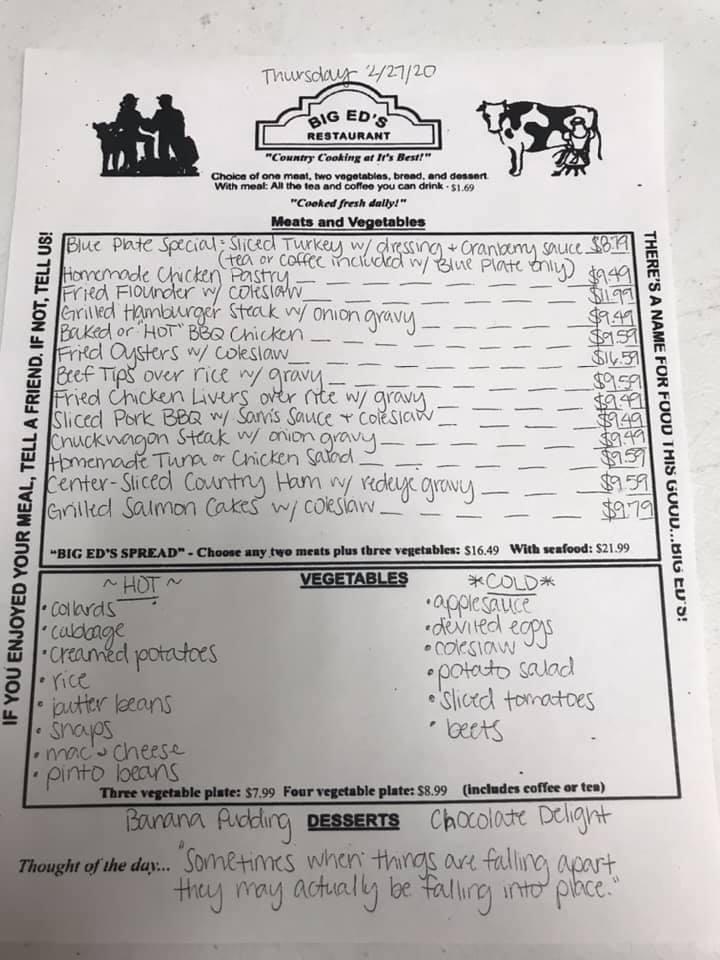 Thursday 2/27/20
BIG ED'S
RESTAURANT
"Country Cooking at It's Best!"
Choice of one meat, two vegetables, bread, and dessert
With meal: All the tea and coffee you can drink - $1.69
"Cooked fresh daily!"
Meats and Vegetables
IF YOU ENJOYED YOUR MEAL, TELL A FRIEND. IF NOT, TELL US!
THERE'S A NAME FOR FOOD THIS GOOD...BIG ED'S!
Blue Plate Special: Sliced Turkey w/ dressing + Cranberry sauce $8.79
(tea or coffee included w/ Blue Plate only)
Homemade Chicken Pastry $9.49
Fried Flounder w/ coleslaw $11.99
Grilled Hamburger Steak w/ onion gravy $9.49
Baked or "HOT" BBQ Chicken $9.59
Fried Oysters w/ coleslaw $16.59
Beef Tips over rice w/ gravy $9.59
Fried Chicken Livers over rice w/ gravy $9.49
Sliced Pork BBQ w/ Sam's Sauce + coleslaw $9.49
Chuckwagon Steak w/ onion gravy $9.49
Homemade Tuna or Chicken Salad $9.59
Center-Sliced Country Ham w/ redeye gravy $9.59
Grilled Salmon Cakes w/ coleslaw $9.79
"BIG ED'S SPREAD" - Choose any two meats plus three vegetables: $16.49 With seafood: $21.99
VEGETABLES
~ HOT ~
• collards
• cabbage
• creamed potatoes
• rice
• butter beans
• snaps
• mac + cheese
• pinto beans
*COLD*
• applesauce
• deviled eggs
• coleslaw
• potato salad
• sliced tomatoes
• beets
Three vegetable plate: $7.99 Four vegetable plate: $8.99 (includes coffee or tea)
Banana Pudding DESSERTS Chocolate Delight
Thought of the day... "Sometimes when things are falling apart
they may actually be falling into place."